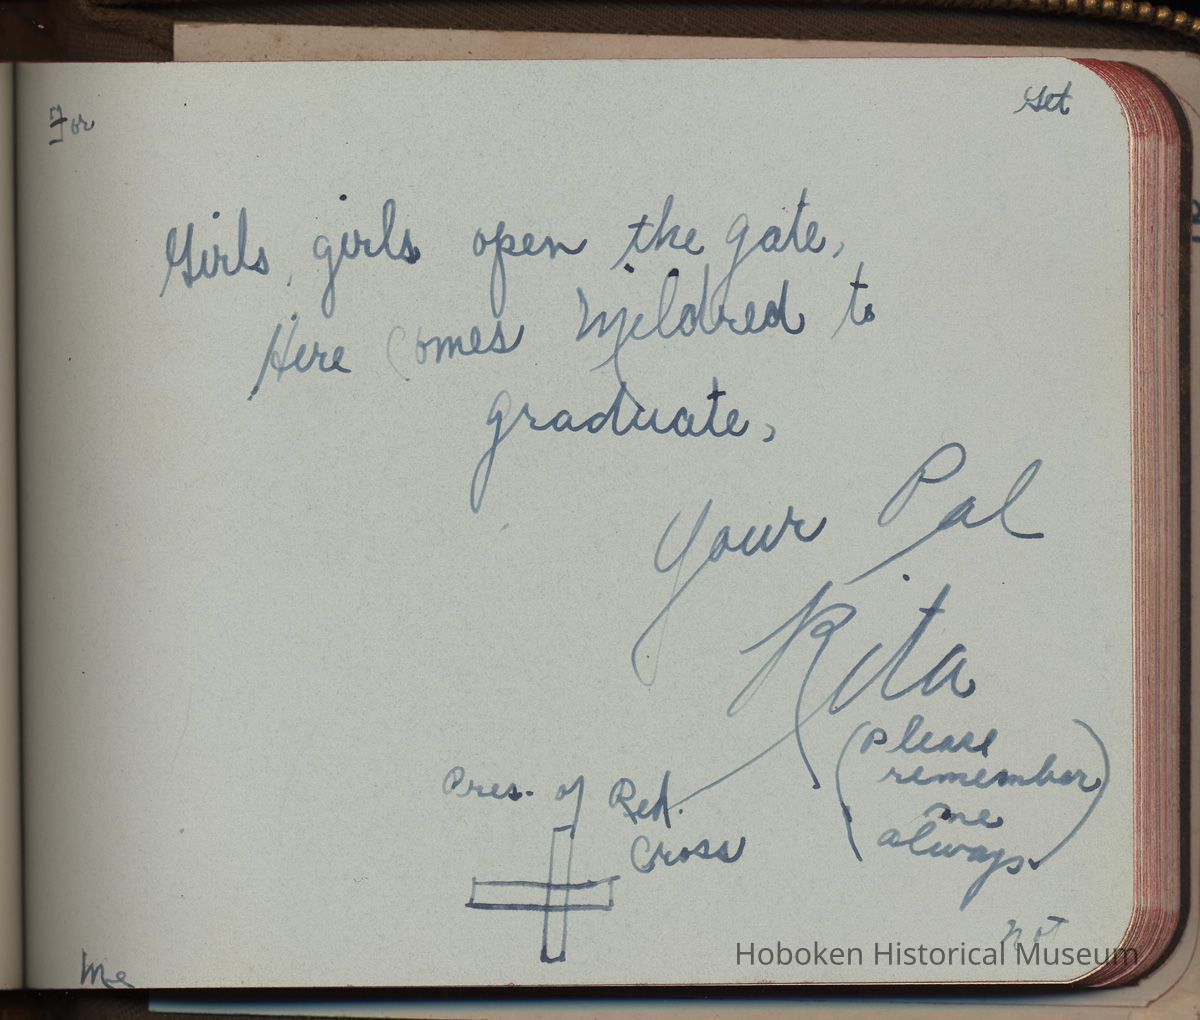 For
Get
Girls, girls open the gate,
Here Comes Mildred to
graduate,
Your Pal
Rita
(please
remember
me
always)
Pres. of Red.
Cross
Me
not
Hoboken Historical Museum